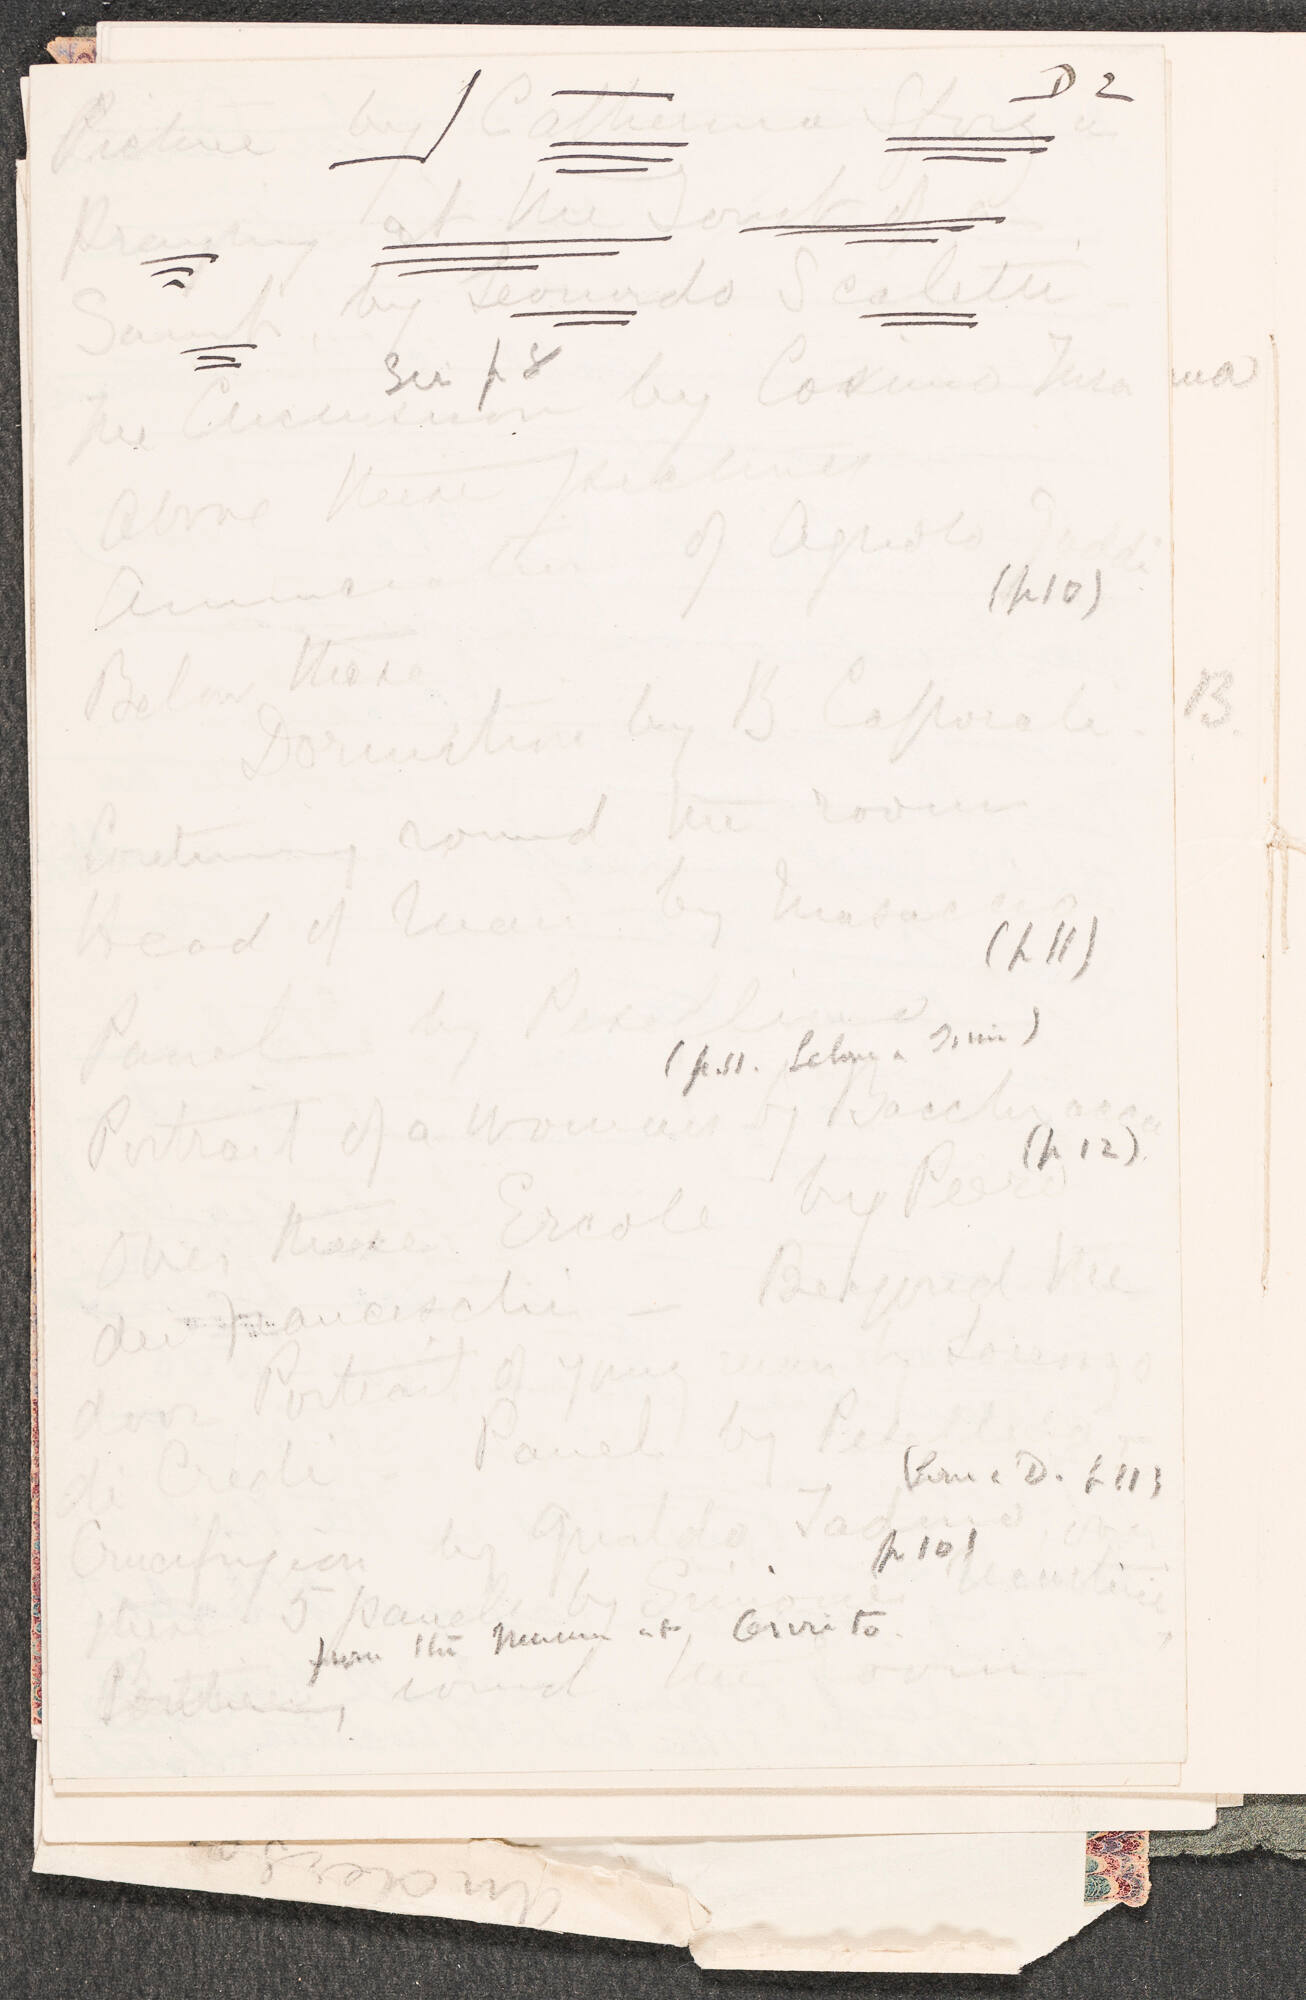 D 2
Picture by Catherina Sforza
Praying at the Tomb of a
Saint, by Leonardo Scaletti -
See p 8
The Circumcision by Cosimo Tura
Above these pictures
Annunciation of Agnolo Gaddi
(p 10)
Below these
Dormition by B. Caporali - B.
Continuing round the room
Head of Man by Masaccio
(p 11)
Panel by Pesellino
(p. 11.
Portrait of a Woman by Bacchiacca
(p 12).
Over these Ercole by Piero
dei Franceschi - Beyond the
door Portrait of young man by Lorenzo
di Credi - Panel by Pesellino -
D. p 11)
Crucifixion by Gualdo Tadino, over
p 10)
these 5 panels by Simone Martini,
from the Museum at Orvieto.
Continuing round the room